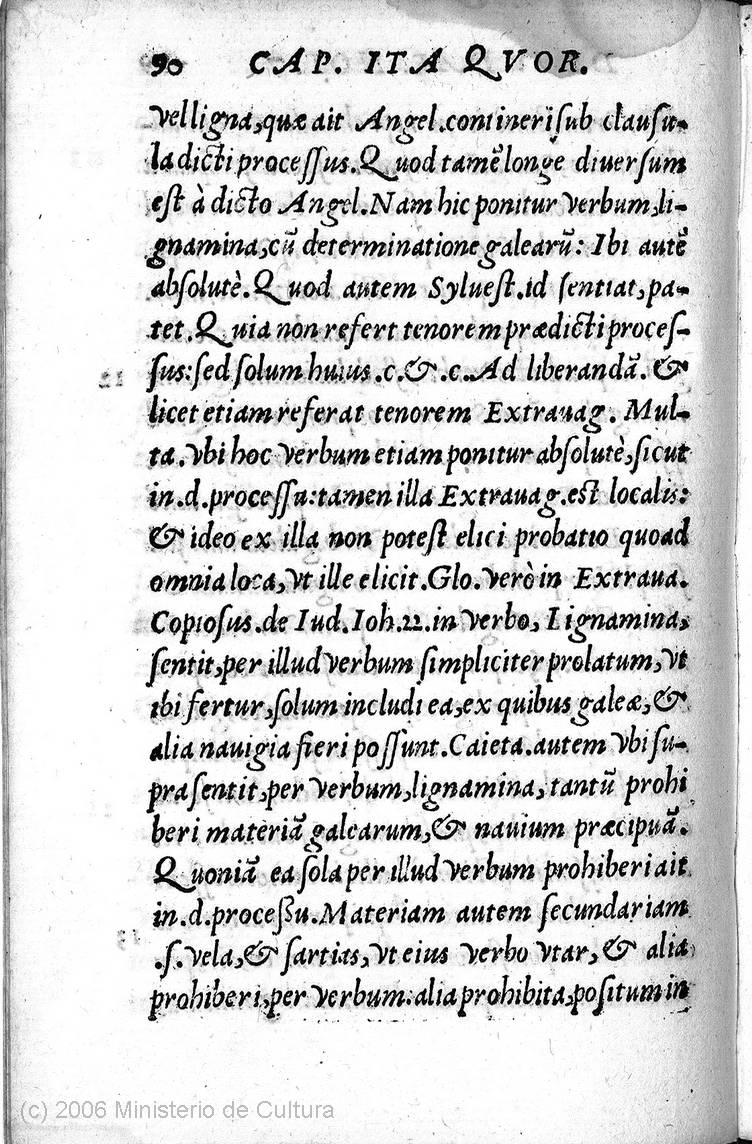 90 CAP. ITA QVOR.
vel ligna, quæ ait Angel. contineri sub clausu-
la dicti processus. Quod tamē longè diuersum
est à dicto Angel. Nam hic ponitur verbum, li-
gnamina, cū determinatione galearū: Ibi autē
absolutè. Quod autem Syluest. id sentiat, pa-
tet. Quia non refert tenorem prædicti proces-
sus: sed solum huius .c. & .c. Ad liberandā. &
licet etiam referat tenorem Extrauag. Mul-
ta. vbi hoc verbum etiam ponitur absolutè, sicut
in .d. processu: tamen illa Extrauag. est localis:
& ideo ex illa non potest elici probatio quoad
omnia loca, vt ille elicit. Glo. verò in Extraua.
Copiosus. de Iud. Ioh. 22. in verbo, Lignamina,
sentit, per illud verbum simpliciter prolatum, vt
ibi fertur, solum includi ea, ex quibus galeæ, &
alia nauigia fieri possunt. Caieta. autem vbi su-
pra sentit, per verbum, lignamina, tantū prohi
beri materiā galearum, & nauium præcipuā.
Quoniā ea sola per illud verbum prohiberi ait
in .d. processu. Materiam autem secundariam
.s. vela, & sartias, vt eius verbo vtar, & alia
prohiberi, per verbum: alia prohibita, positum in
12
13
(c) 2006 Ministerio de Cultura